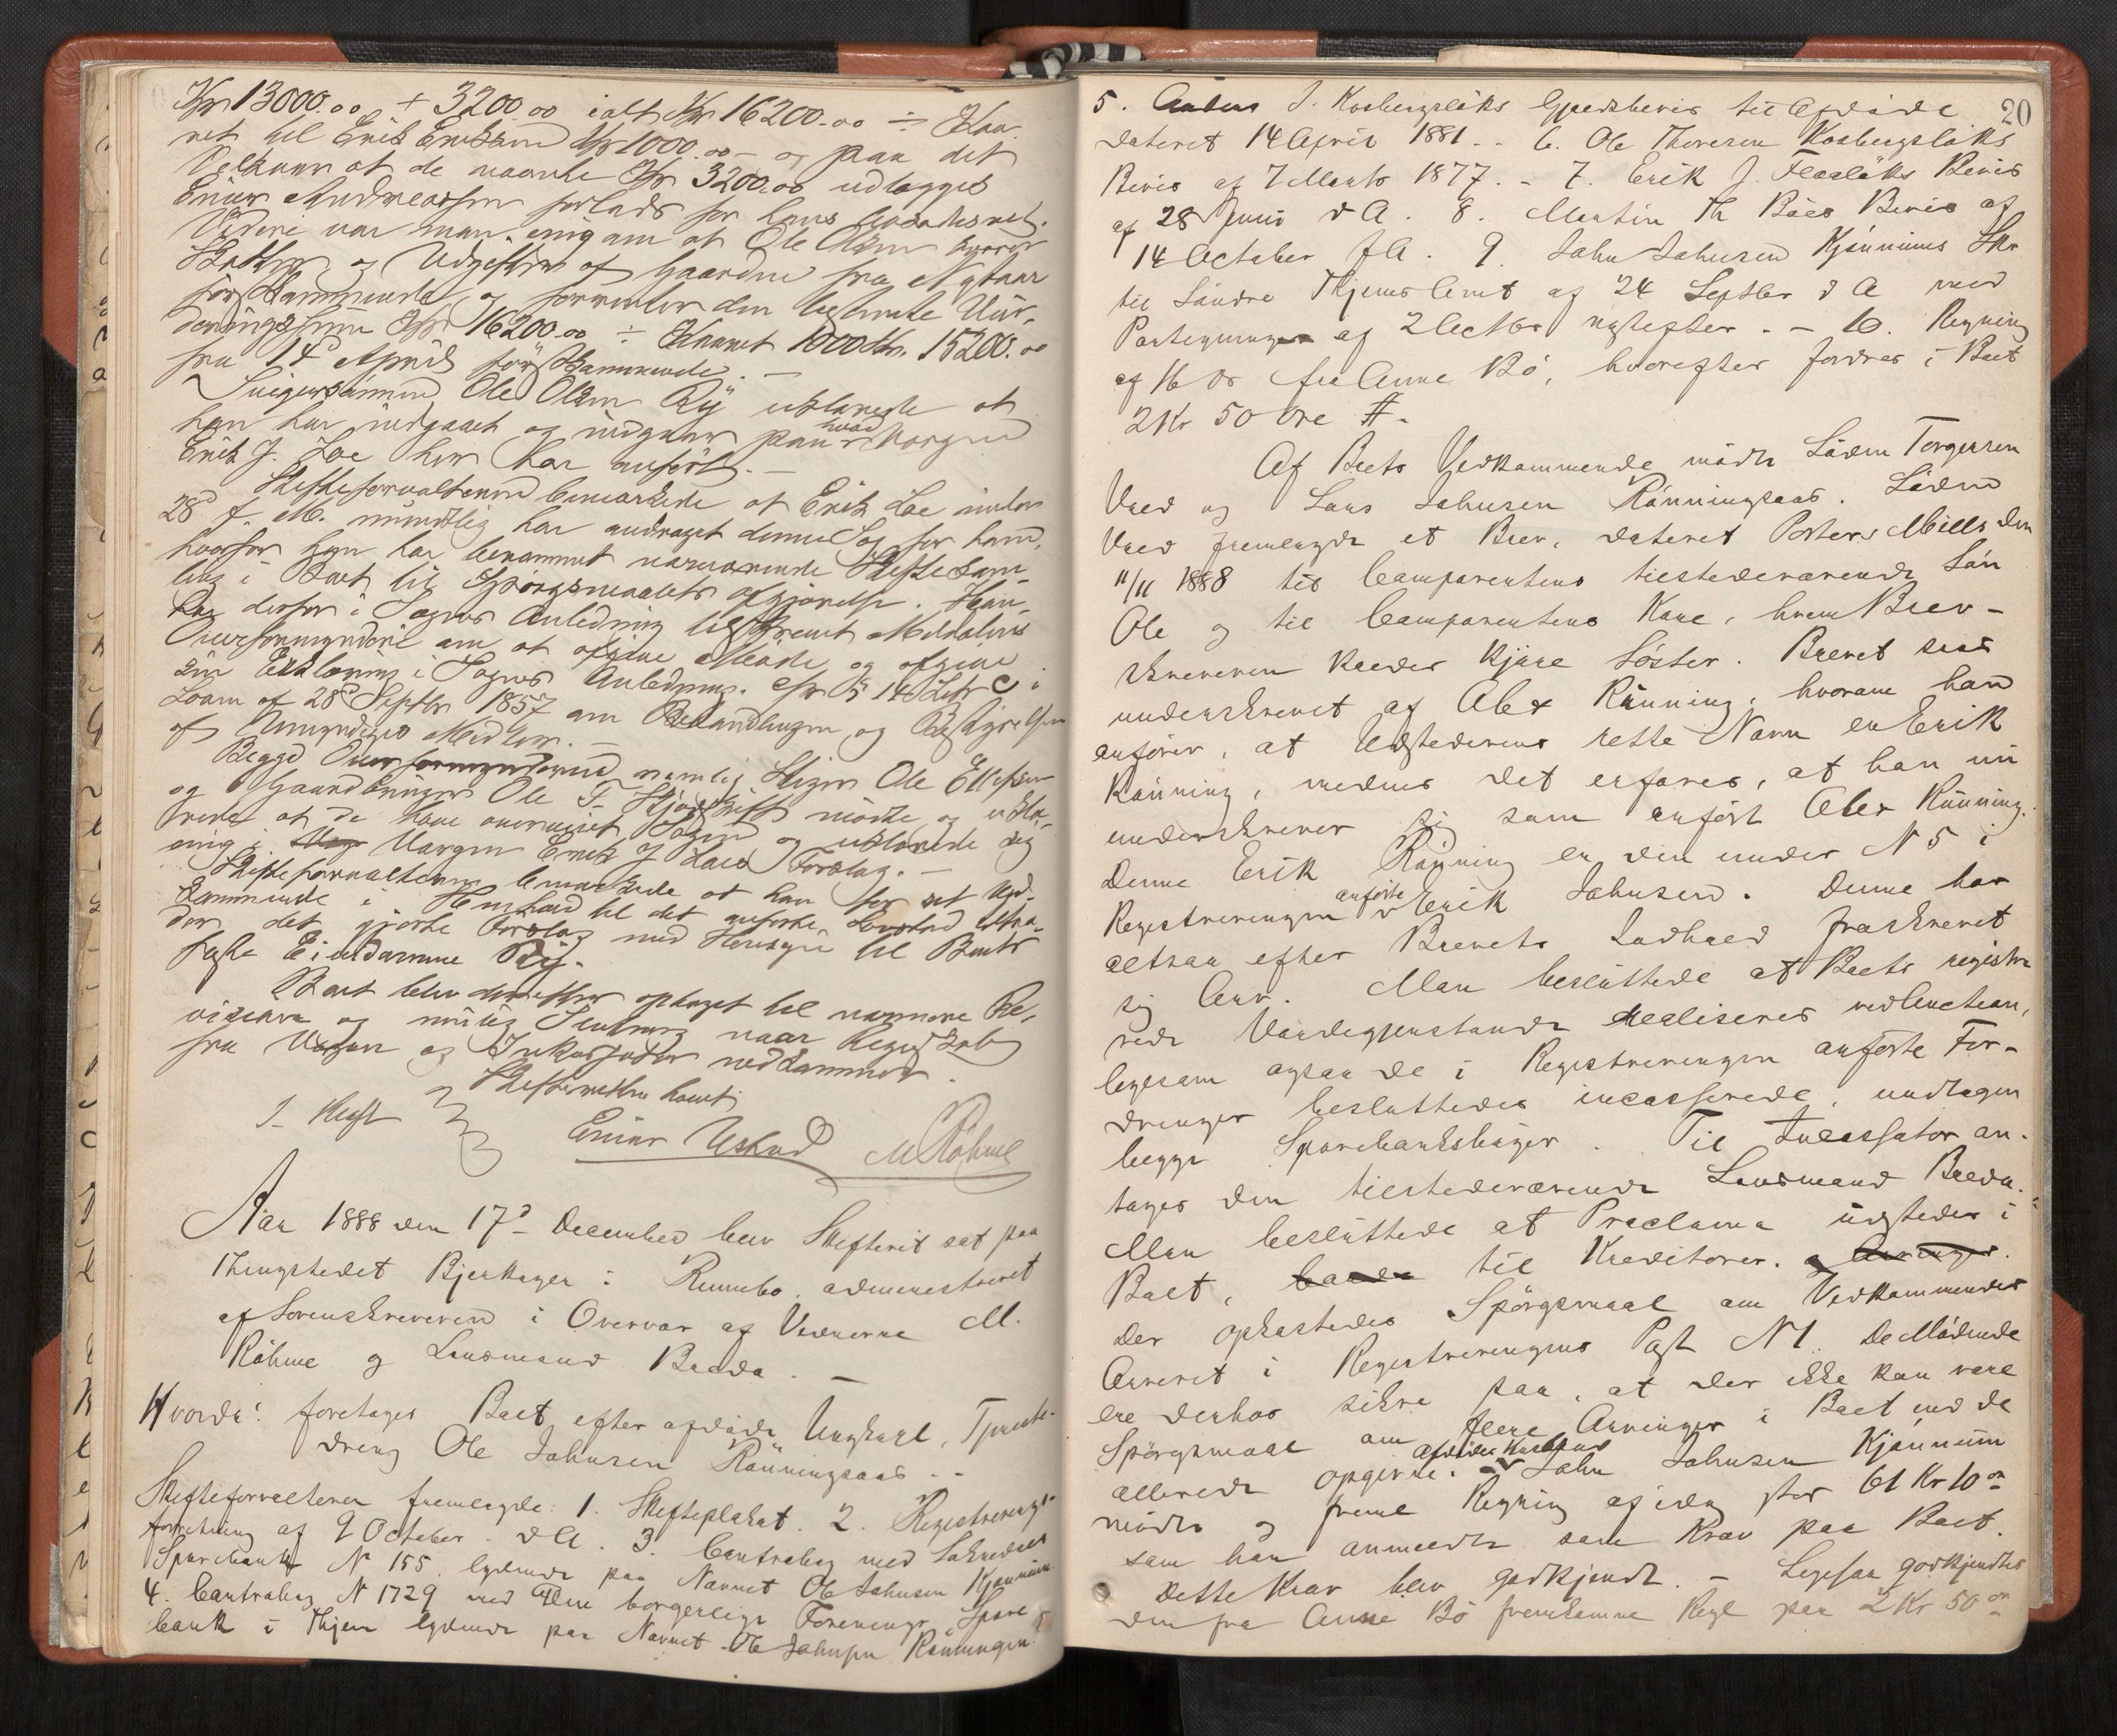 Kr 13000.00 + 3200.00 ialt Kr 16200.00 ÷ Kaa-
ret til Erik Eriksen Kr 1000.00 og paa det
Vilkaar at de nævnte Kr 3200.00 udlægges
Einar Andreassen forlods for hans Aasædesret.
Videre var man enig om at Ole Olsen svarer
Skatter og Udgifter af Gaarden fra Nytaar
førstkommende og forrenter den bestemte Vur-
deringssum Kr 16200.00 ÷ Kaaret 1000 Kr. 15200.00
fra 14d April førstkommende. —
Svigersønnen Ole Olsen Ry erklærede at
han har indgaaet og indgaar paa hvad Værgen
Erik J. Loe her har anført. —
Skifteforvalteren bemærkede at Erik Loe under
28d f. M. mundtlig har andraget denne Sag for ham,
hvorfor han har berammet nærværende Skiftesam-
ling i Boet til Spørgsmaalets Afgjørelse. Han
har derfor i Sagens Anledning tilskrevet Meldalens
Overformynderi om at afgive Møde og afgive
sin Erklæring i Sagens Anledning. cfr § 14 Litr c i
Loven af 28d Septbr 1857 om Behandlingen og Bestyrelsen
af Umyndiges Midler. —
Begge Overformyndere nemlig Stiger Ole Ellefsen
og Gaardbruger Ole T. mødte og erklæ-
rede at de have overveiet Sagen og erklærede sig
enig i Værgen Erik J Loes Forslag. —
Skifteforvalteren bemærkede at han for sit Ved-
kommende i Henhold til det anførte
det gjorte Forslag med Hensyn til Boets
faste Eiendomme Ry.
Boet blev derefter optaget til nærmere Re-
visering og mulig Slutning naar Regnskab
fra Værgen og Inkassator nedkommer.
Skifteretten hævet
Einar Uskud M Röhme
Aar 1888 den 17d December blev Skifteret sat paa
Thingstedet Bjerkager i Rennebo, administreret
af Sorenskriveren i Overvær af Vidnerne M.
Röhme og Lensmand Breda. —
Hvorda: foretages Boet efter afdøde Ungkarl, Tjeneste-
dreng Ole Johnsen Rönningsaas. -
Skifteforvalteren fremlagde: 1. Skifteplakat. 2. Registrerings-
forretning af 9 October d A. 3. Contrabog med Soknedals
Sparebank N 155. lydende paa Navnet Ole Johnsen Kjönnum
4. Contrabog N 1729 med Den borgerlige Forenings Spare
bank i Thjem lydende paa Navnet Ole Johnsen Rönningen
20
5. Anders J. Kosbergsløks Gjeldsbevis til Afdøde
dateret 14 April 1881. - 6. Ole Thoresen Kosbergsløks
Bevis af 7 Marts 1877. - 7. Erik J. Fleslöks Bevis
af 28 Juni d A. 8. Martin Th Böes Bevis af
14 October f A. 9. John Johnsen Kjönnums Skr
til Söndre Thjems Amt af 24 Septbr d A med
Paategninger af 2 Octbr næstefter. - 10. Regning
af 16 ds fra Anne Bö, hvorefter fordres i Boet
2 Kr 50 Øre #.
Af Boets Vedkommende mödte Sören Torgersen
Vaed og Lars Johnsen Rönningsaas. Sören
Vaed fremlagde et Brev, dateret Porters Mills den
11/11 1888 til Comparentens tilstedeværende Sön
Ole og til Comparentens Kone, hvem Brev-
skriveren kalder kjære Söster. Brevet sees
underskrevet af Alex Rönning, hvorom han
anförer, at Udstederens rette Navn er Erik
Rönning, medens det erfares, at han nu
underskriver sig som anfört Alex Rönning.
Denne Erik Rönning er den under N 5 i
Registreringen anförte Erik Johnsen. Denne har
altsaa efter Brevets Indhold fraskrevet
sig Arv. Man besluttede at Boets registre
rede Værdigjenstande realiseres ved Auction,
ligesom ogsaa de i Registreringen anförte For-
dringer besluttedes incasserede, undtagen
begge Sparebanksböger. Til Incassator an-
tages den tilstedeværende Lensmand Breda.
Man besluttede at Proclama udstedes i
Boet, baade til Kreditorer. og Arvinger.
Der opkastedes Spörgsmaal om Vedkommendes
Arveret i Registreringens Post N 1. De Mödende
ere derhos sikre paa, at der ikke kan være
Spörgsmaal om flere Arvinger i Boet end de
allerede opgivne. - Afdödes John Johnsen Kjönnum
mödte og freml Regning af idag stor 61 Kr 10 ø
som han anmeldte som Krav paa Boet.
Dette Krav blev godkjendt. - Ligesaa godkjendtes
den fra Anne Bö fremkomne Regl paa 2 Kr 50 ø